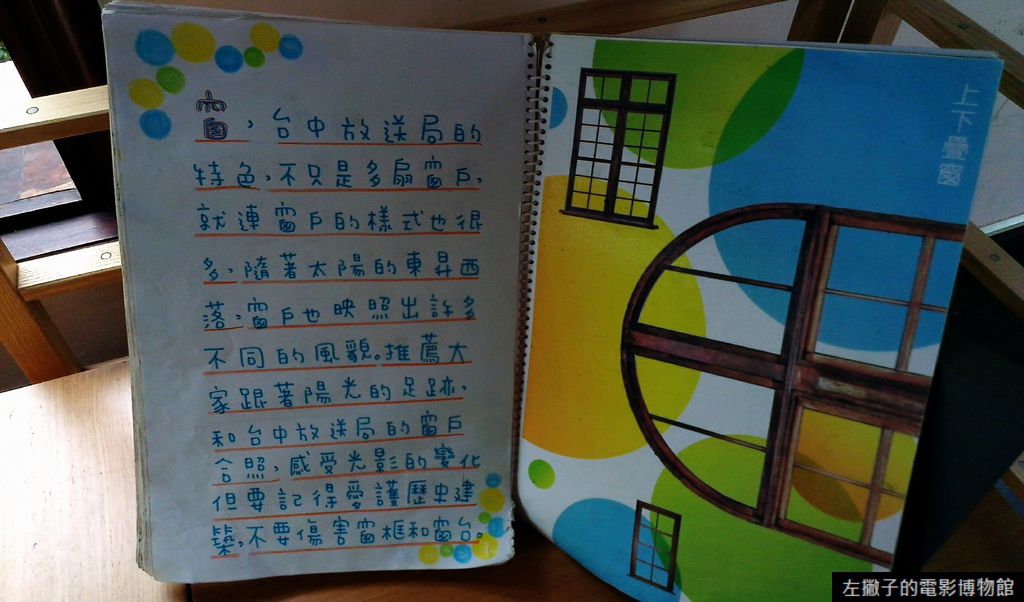 窗，台中放送局的
特色，不只是多扇窗戶，
就連窗戶的樣式也很
多，隨著太陽的東昇西
落，窗戶也映照出許多
不同的風貌。推薦大
家跟著陽光的足跡，
和台中放送局的窗戶
合照，感受光影的變化
但要記得愛護歷史建
築，不要傷害窗框和窗台。
上下疊窗
左撇子的電影博物館